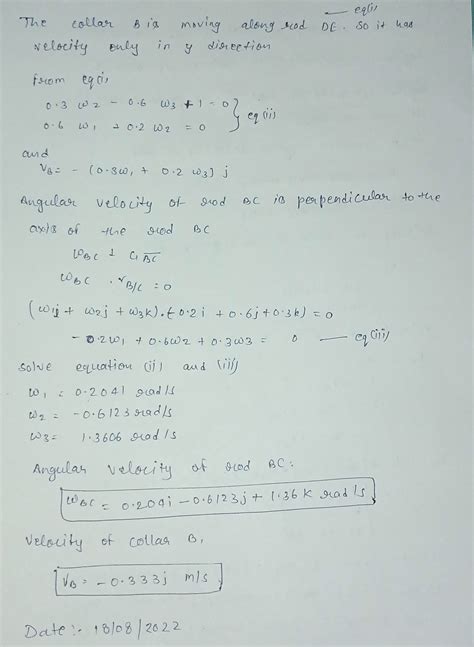 eq(i)
The collar B is moving along rod DE. So it has
velocity only in y direction
from eq(i),
0.3 ω2 - 0.6 ω3 + 1 = 0
0.6 ω1 + 0.2 ω2 = 0 } eq(ii)
and
VB = - (0.3ω1 + 0.2 ω3) j
Angular velocity of rod BC is perpendicular to the
axis of the rod BC
ωBC ⊥ BC
ωBC . rB/C = 0
(ω1j + ω2j + ω3k).(-0.2i + 0.6j + 0.3k) = 0
- 0.2ω1 + 0.6ω2 + 0.3ω3 = 0 — eq(iii)
solve equation (ii) and (iii)
ω1 = 0.2041 rad/s
ω2 = -0.6123 rad/s
ω3 = 1.3606 rad/s
Angular velocity of rod BC:
ωBC = 0.204i - 0.6123j + 1.36k rad/s
Velocity of collar B,
VB = -0.333j m/s
Date :- 18/08/2022